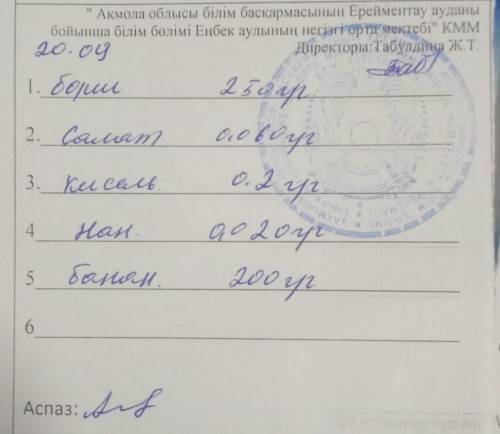 " Ақмола облысы білім басқармасының Ерейментау ауданы
бойынша білім бөлімі Еңбек аулының негізгі орта мектебі" КММ
20.09 Директоры:Табулдина Ж.Т.
1. борщ 250гр
2. Салат 0.060гр
3. кисель. 0.2 гр
4 Нан. 0.020гр
5 банан. 200гр
6
Аспаз: